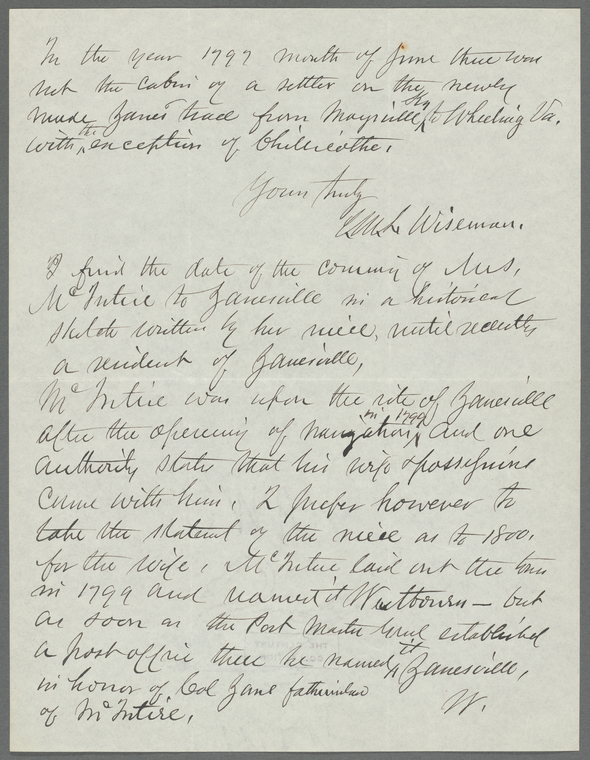 In the year 1797 month of June there was
not the cabin of a settler on the newly
made Zanes trace from Maysville Ky to Wheeling Va.
with the exception of Chillicothe.
Yours truly
C.M.L. Wiseman.
I find the date of the coming of Mrs.
McIntire to Zanesville in a historical
sketch written by her niece, until recently
a resident of Zanesville,
McIntire was upon the site of Zanesville
after the opening of navigation in 1799 and one
authority state that his wife & possessions
came with him. I prefer however to
take the statemt of the niece as to 1800.
for the wife. McIntire laid out the town
in 1799 and named it Westbourn — but
as soon as the Post Master Genl established
a post office there he named it Zanesville,
in honor of Col Zane fatherinlaw
of McIntire.
W.